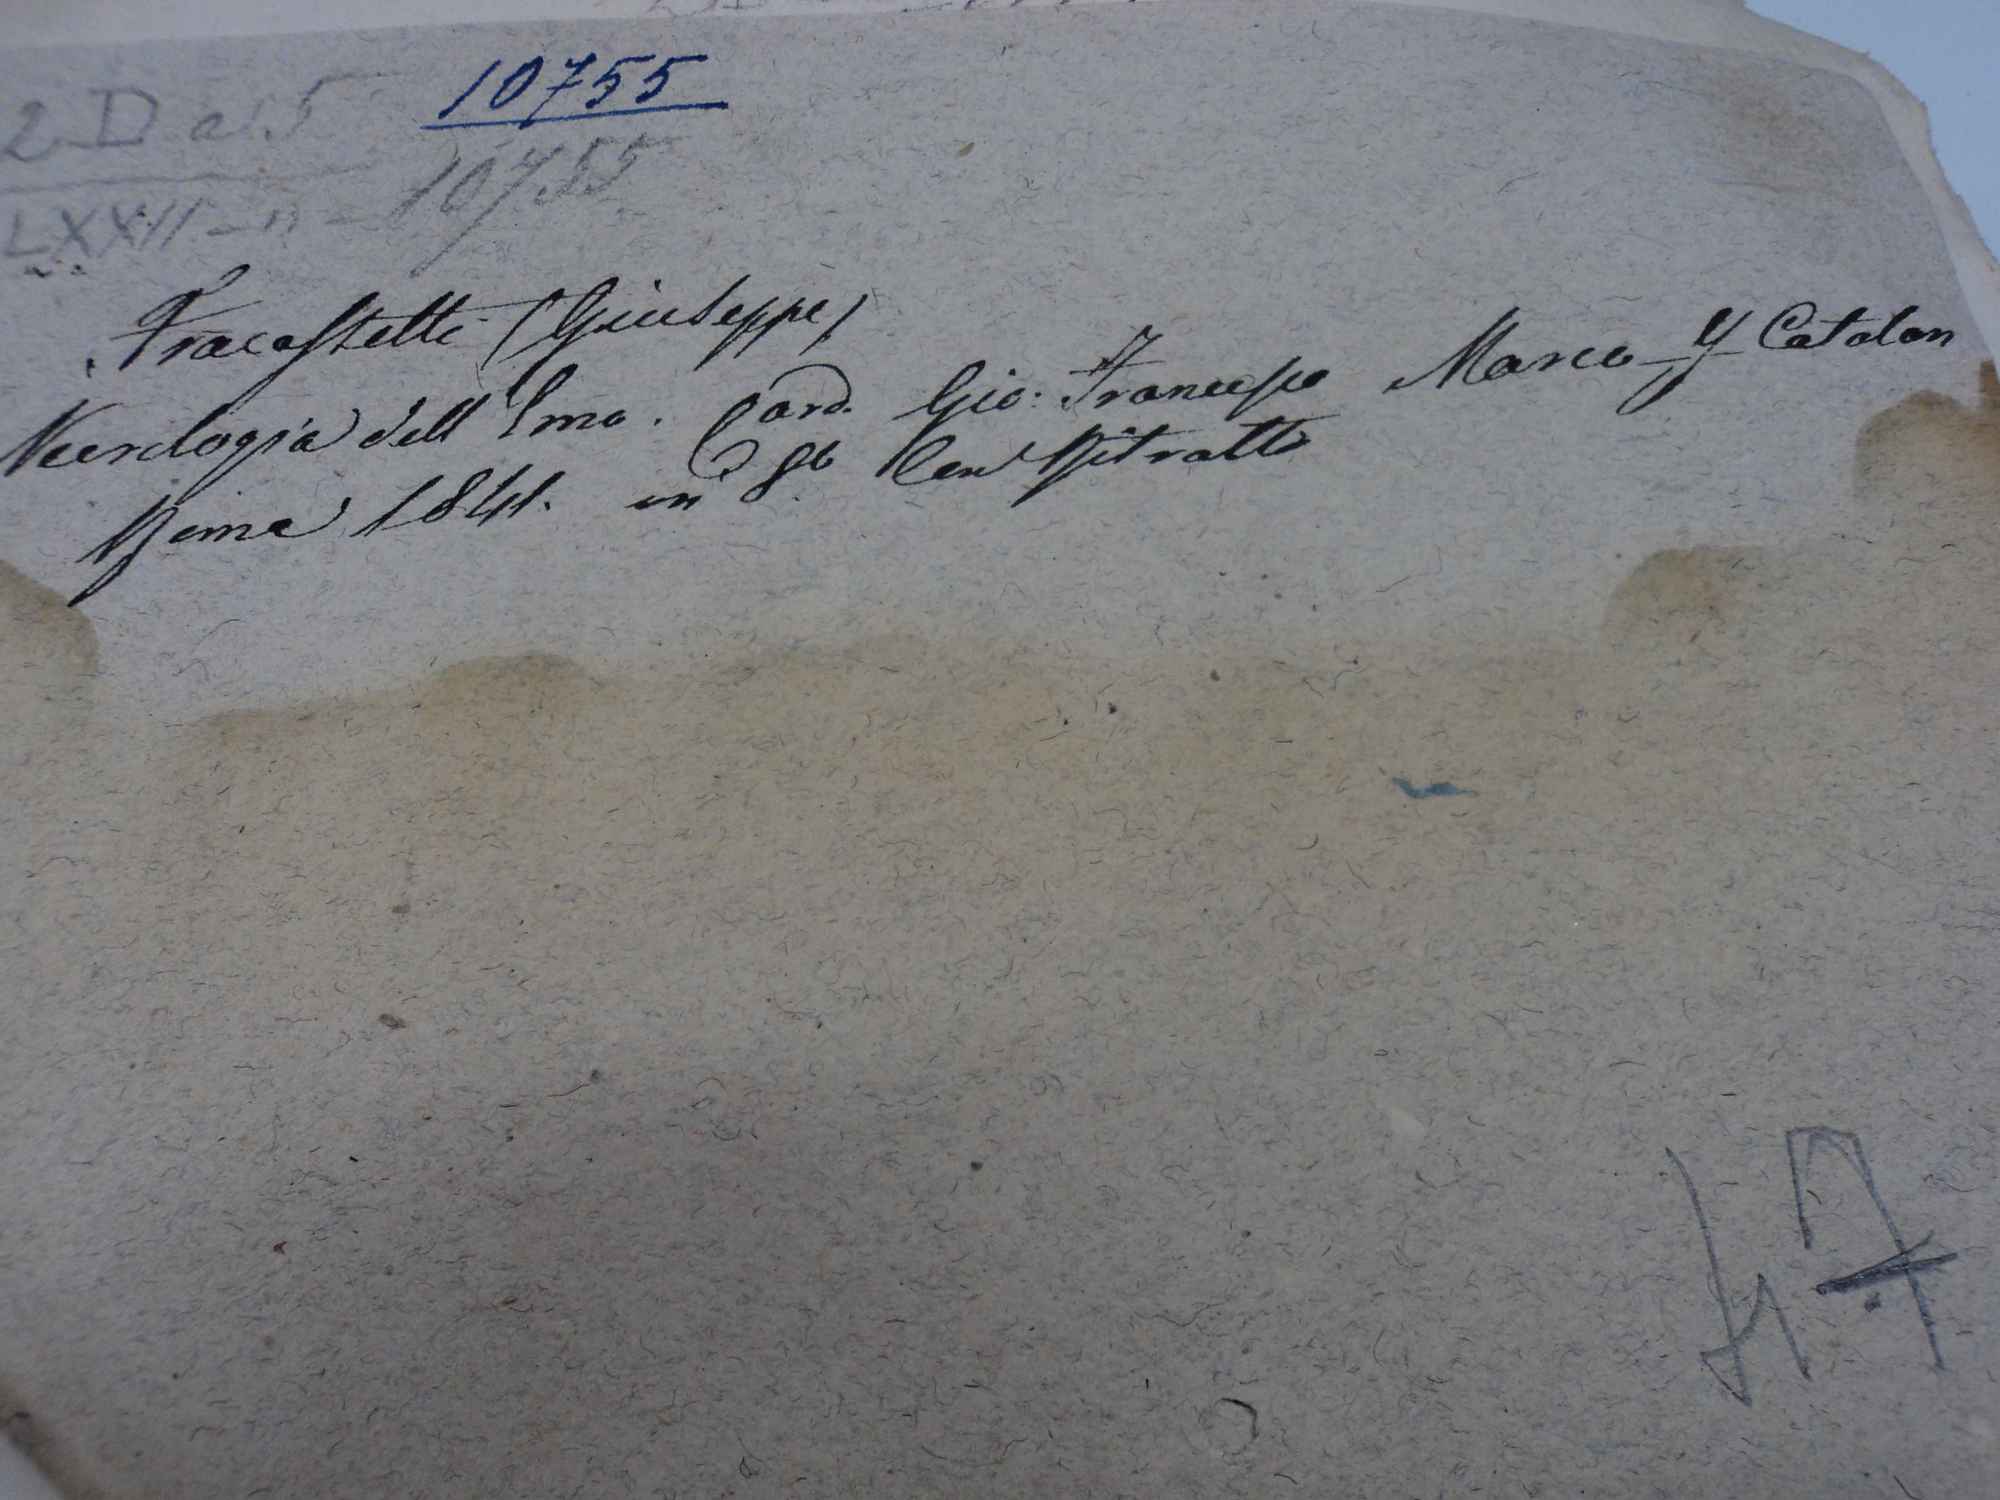 10755
2 D a 5
LXXII - n - 10755
Fracassetti (Giuseppe)
Necrologia dell' Emo. Card. Gio: Francesco Marco-Y Catalan
Roma 1841. in 8° Con Ritratto